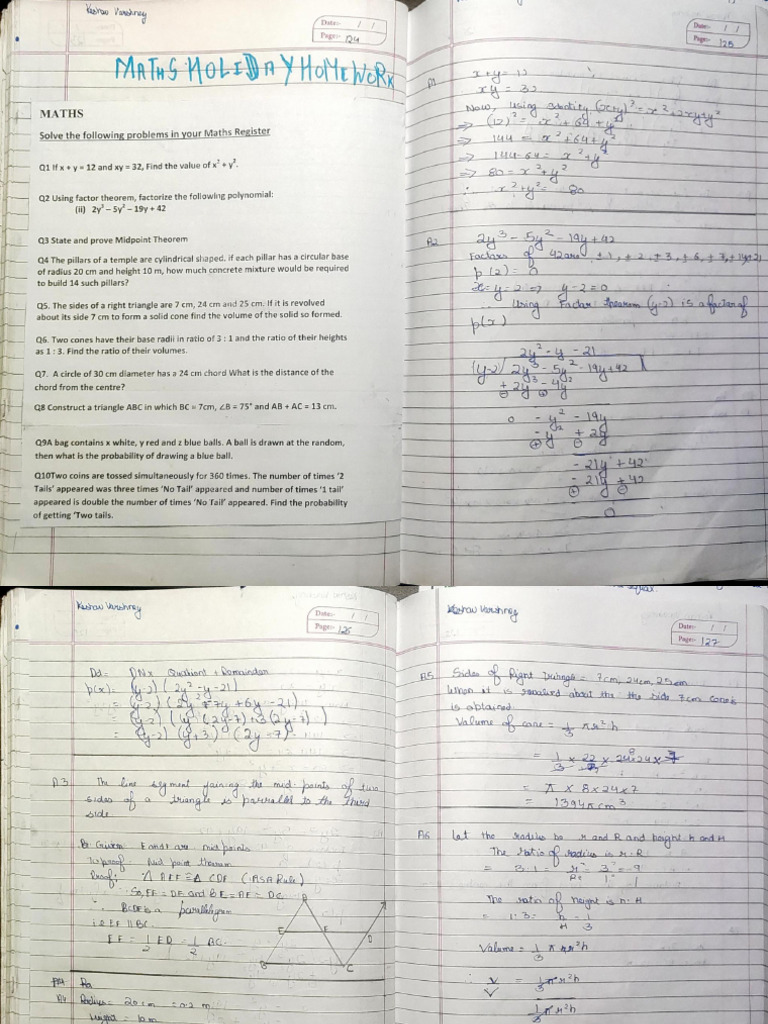 Keshav Varshney
Date:- / /
Page:- 124
MATHS HOLIDAY HOMEWORK
MATHS
Solve the following problems in your Maths Register
Q1 If x + y = 12 and xy = 32, Find the value of x² + y².
Q2 Using factor theorem, factorize the following polynomial:
(ii) 2y³ – 5y² – 19y + 42
Q3 State and prove Midpoint Theorem
Q4 The pillars of a temple are cylindrical shaped. if each pillar has a circular base
of radius 20 cm and height 10 m, how much concrete mixture would be required
to build 14 such pillars?
Q5. The sides of a right triangle are 7 cm, 24 cm and 25 cm. If it is revolved
about its side 7 cm to form a solid cone find the volume of the solid so formed.
Q6. Two cones have their base radii in ratio of 3 : 1 and the ratio of their heights
as 1 : 3. Find the ratio of their volumes.
Q7. A circle of 30 cm diameter has a 24 cm chord What is the distance of the
chord from the centre?
Q8 Construct a triangle ABC in which BC = 7cm, ∠B = 75° and AB + AC = 13 cm.
Q9A bag contains x white, y red and z blue balls. A ball is drawn at the random,
then what is the probability of drawing a blue ball.
Q10Two coins are tossed simultaneously for 360 times. The number of times '2
Tails' appeared was three times 'No Tail' appeared and number of times '1 tail'
appeared is double the number of times 'No Tail' appeared. Find the probability
of getting 'Two tails.
Date:- / /
Page:- 125
x+y = 12
xy = 32
Now, using identity (x+y)² = x²+2xy+y²
⇒ (12)² = x² + 64 + y²
⇒ 144 = x² + 64 + y²
⇒ 144-64 = x² + y²
⇒ 80 = x² + y²
∴ x² + y² = 80
A2 2y³ - 5y² - 19y + 42
Factors of 42 are ±1, ±2, ±3, ±6, ±7,
p(2) = 0
x = y = 2 ⇒ y-2 = 0
Using Factor theorem (y-2) is a factor of
p(x)
2y² - y - 21
(y-2) 2y³ - 5y² - 19y + 42
+ 2y³ - 4y²
0 - y² - 19y
- y² + 2y
- 21y + 42
- 21y + 42
0
Keshav Varshney
Date:- / /
Page:- 126
Dd = DNx Quotient + Remainder
p(x) = (y-2) (2y² - y - 21)
= (y-2) (2y² - 7y + 6y - 21)
= (y-2) (y (2y-7) + 3 (2y-7))
= (y-2) (y+3) (2y-7)
A.3 The line segment joining the mid-points of two
sides of a triangle is parallel to the third
side
Given E and F are mid points
To proof: Mid point theorem
Proof: Δ AEF ≅ Δ CDF (ASA Rule)
So, EF = DF and BE = AE = DC
∴ BCDE is a parallelogram
i.e EF || BC.
EF = 1/2 ED = 1/2 BC.
A
E F D
B C
A4 Radius = 20 cm = 0.2 m
Height = 10 m
Keshav Varshney
Date:- / /
Page:- 127
A5 Sides of Right triangle = 7cm, 24cm, 25cm
When it is revolved about the the side 7cm cone is
is obtained.
Volume of cone = 1/3 πr²h
= 1/3 × 22/7 × 24 × 24 × 7
= π × 8 × 24 × 7
= 1394π cm³
A6 Let the radius be r and R and height h and H
The ratio of radius is r:R
= 3:1 = r/R = 3/1
The ratio of height is h:H
= 1:3 = h/H = 1/3
Volume = 1/3 πr²h
∴ v/V = 1/3 πr²h
1/3 πr²h